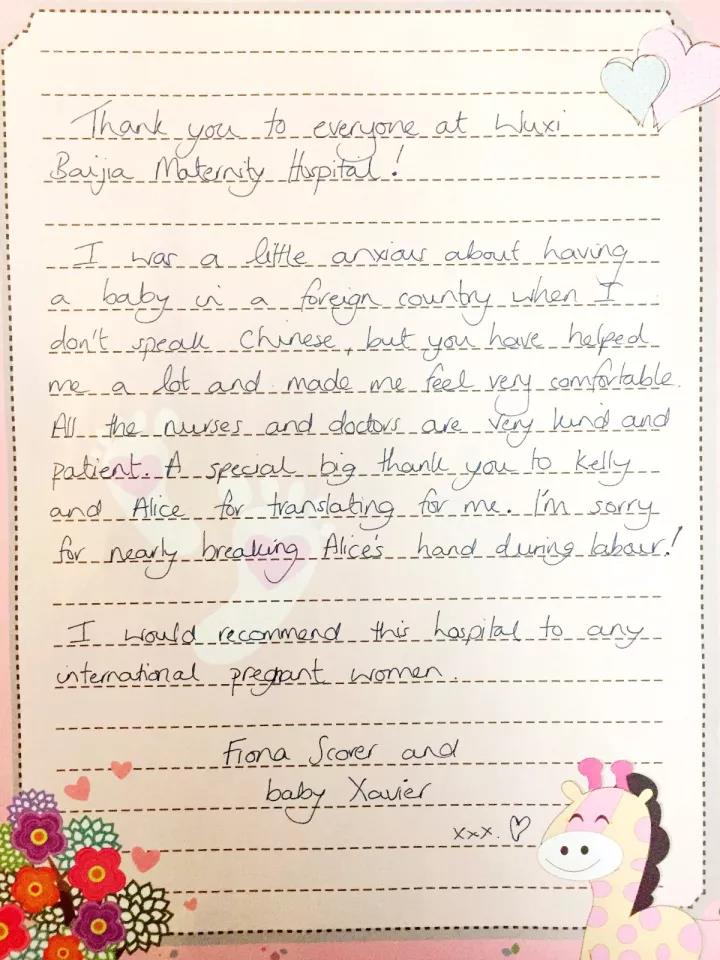 Thank you to everyone at Wuxi
Baijia Maternity Hospital!
I was a little anxious about having
a baby in a foreign country when I
don't speak Chinese, but you have helped
me a lot and made me feel very comfortable.
All the nurses and doctors are very kind and
patient. A special big thank you to Kelly
and Alice for translating for me. I'm sorry
for nearly breaking Alice's hand during labour!
I would recommend this hospital to any
international pregnant women.
Fiona Scorer and
baby Xavier
xxx. ♡